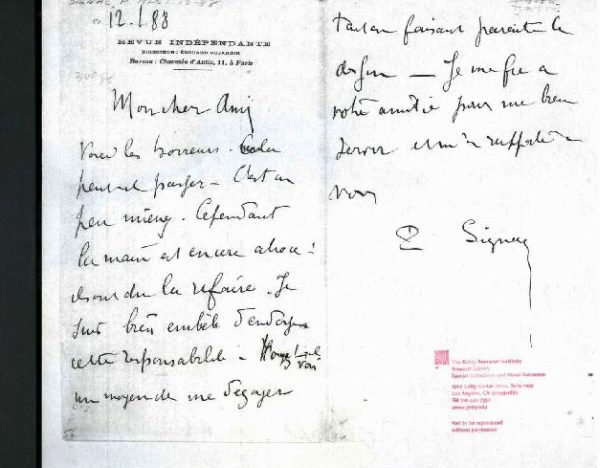 12.1.88
REVUE INDÉPENDANTE
DIRECTEUR : ÉDOUARD DUJARDIN
Bureau : Chaussée d'Antin, 11, à Paris
Mon cher Ami
Voici les horreurs. Cela
peut-il passer – C'est un
peu mieux. Cependant
la main est encore atroce !
la refaire. Je
suis bien embêté d'endosser
cette responsabilité –
un moyen de me dégager
tout en faisant paraître le
dessin — Je me fie à
votre amitié pour me bien
servir et m'en rapporte à
vous
P Signac
The Getty Research Institute
Research Library
Special Collections and Visual Resources
1200 Getty Center Drive, Suite 1100
Los Angeles, CA
www.getty.edu
Not to be reproduced
without permission